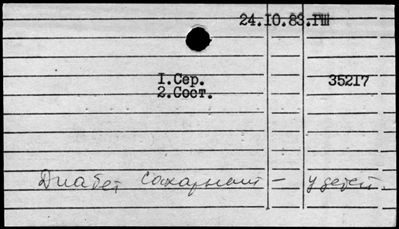 24.10.83.ГШ
1.Сер. 35217
2.Соот.
Диабет сахарный – у детей.